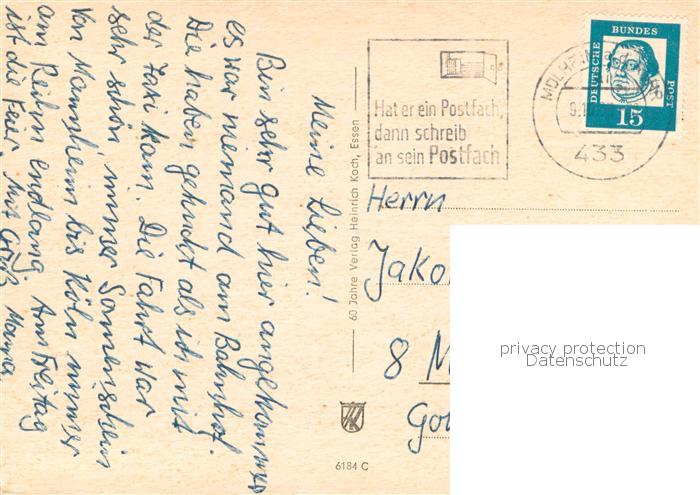 Meine Lieben!
Bin sehr gut hier angekommen
es war niemand am Bahnhof.
Die haben gekuckt als ich mit
der Taxi kam. Die Fahrt war
sehr schön, immer Sonnenschein
Von Mannheim bis Köln immer
am Rhein endlang. Am Freitag
ist die Feier. Mit Grüß Mama
60 Jahre Verlag Heinrich Koch, Essen
6184 C
Hat er ein Postfach,
dann schreib
an sein Postfach
9.10
433
DEUTSCHE
BUNDES
POST
15
Herrn
Jako
8 M
Go
privacy protection
Datenschutz